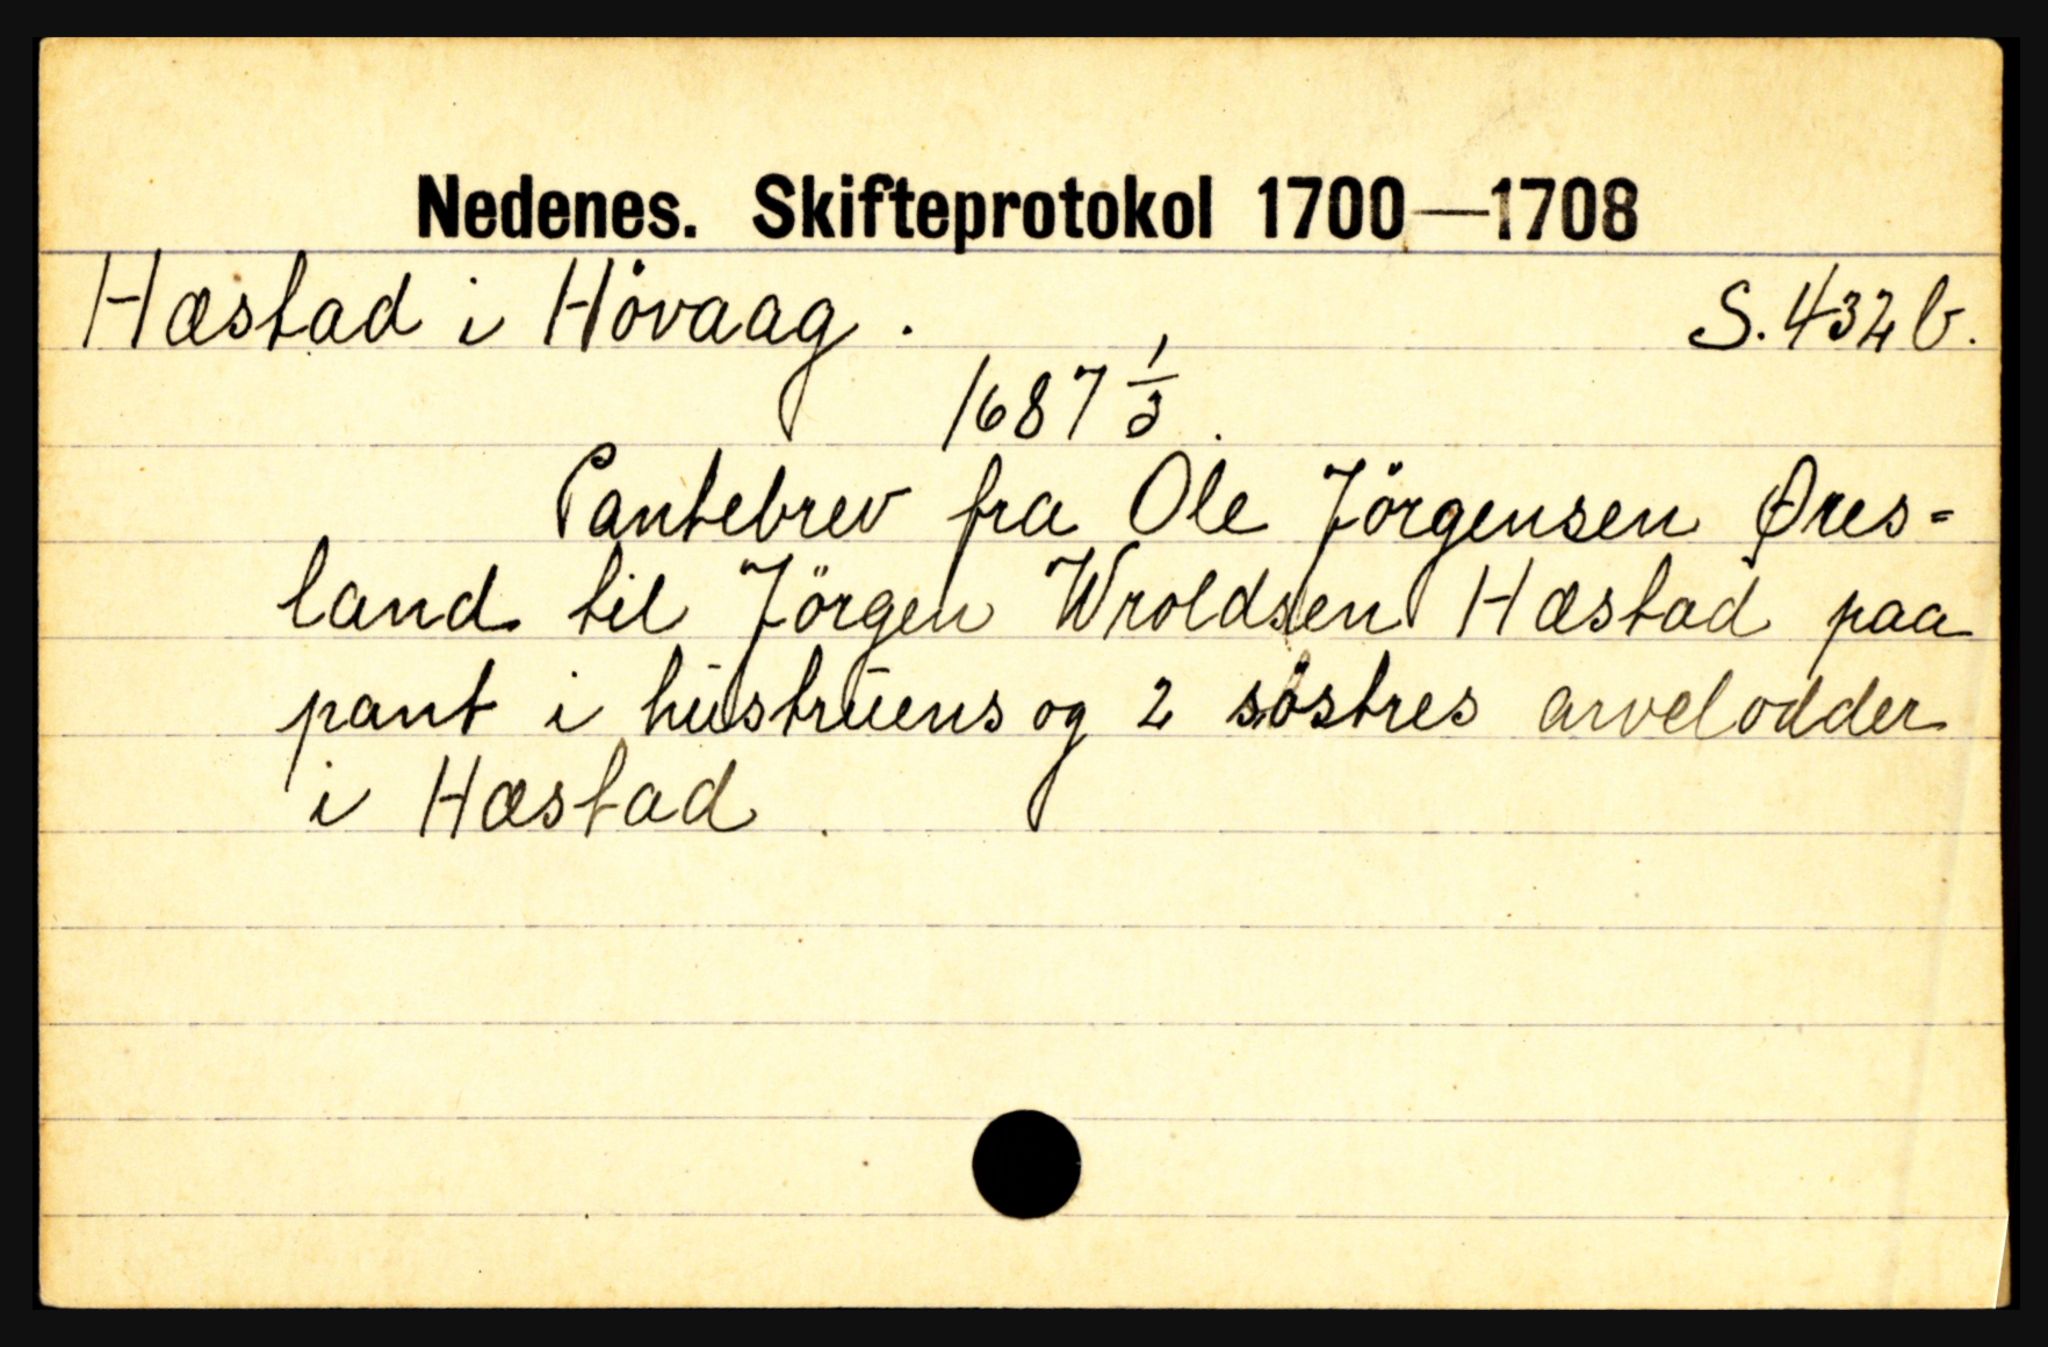 Nedenes. Skifteprotokol 1700—1708
Hæstad i Hövaag. S. 432 b.
1687 1/3.
Pantebrev fra Ole Jörgensen Øres-
land til Jörgen Wroldsen Hæstad paa
pant i hustruens og 2 søstres arvelodder
i Hæstad.